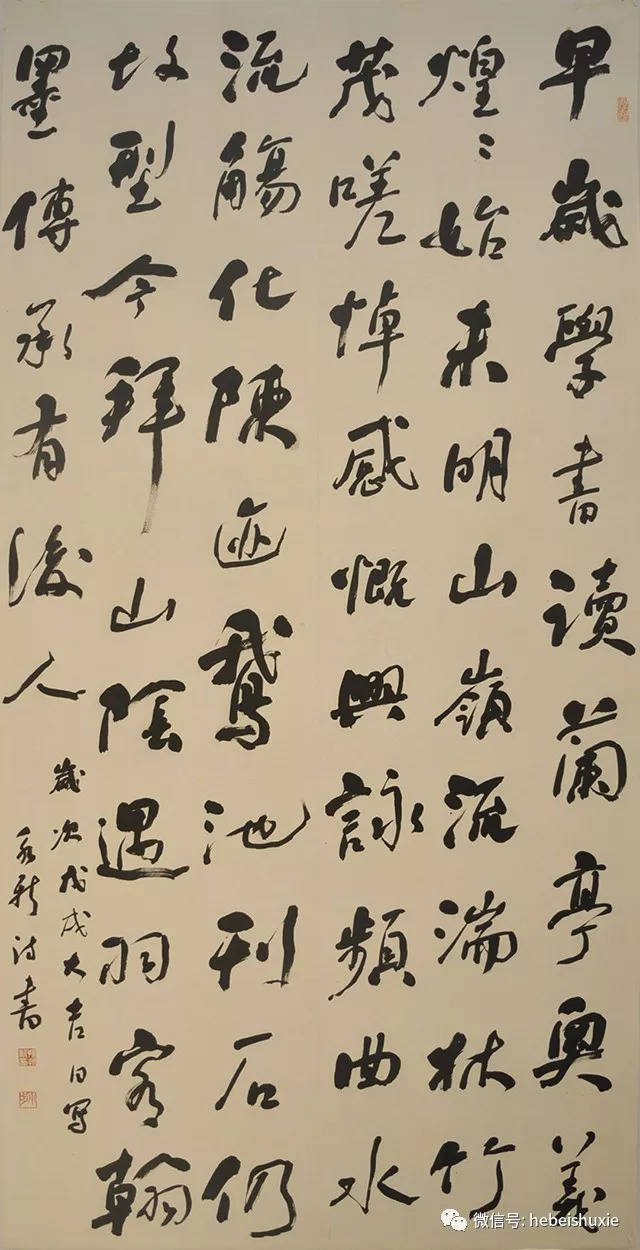 早歲學書讀蘭亭奧義
煌〻始未明山嶺流湍林竹
茂嗟悼感慨興詠頻曲水
流觴化陳迹鵝池刊石仍
故型今拜山陰遇羽客翰
墨傳承有後人
歲次戊戌大吉日寫
詩書
微信号: hebeishuxie